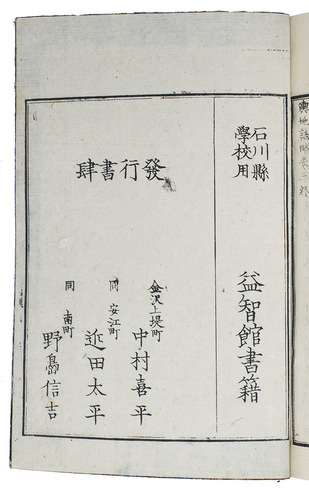 石川縣
學校用
益智館書籍
發行書肆
金沢上堤町
中村喜平
同 安江町
近田太平
同 南町
野島信吉